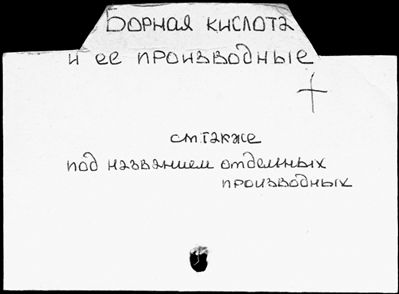 Борная кислота
и ее производные
см. также
под названием отдельных
производных